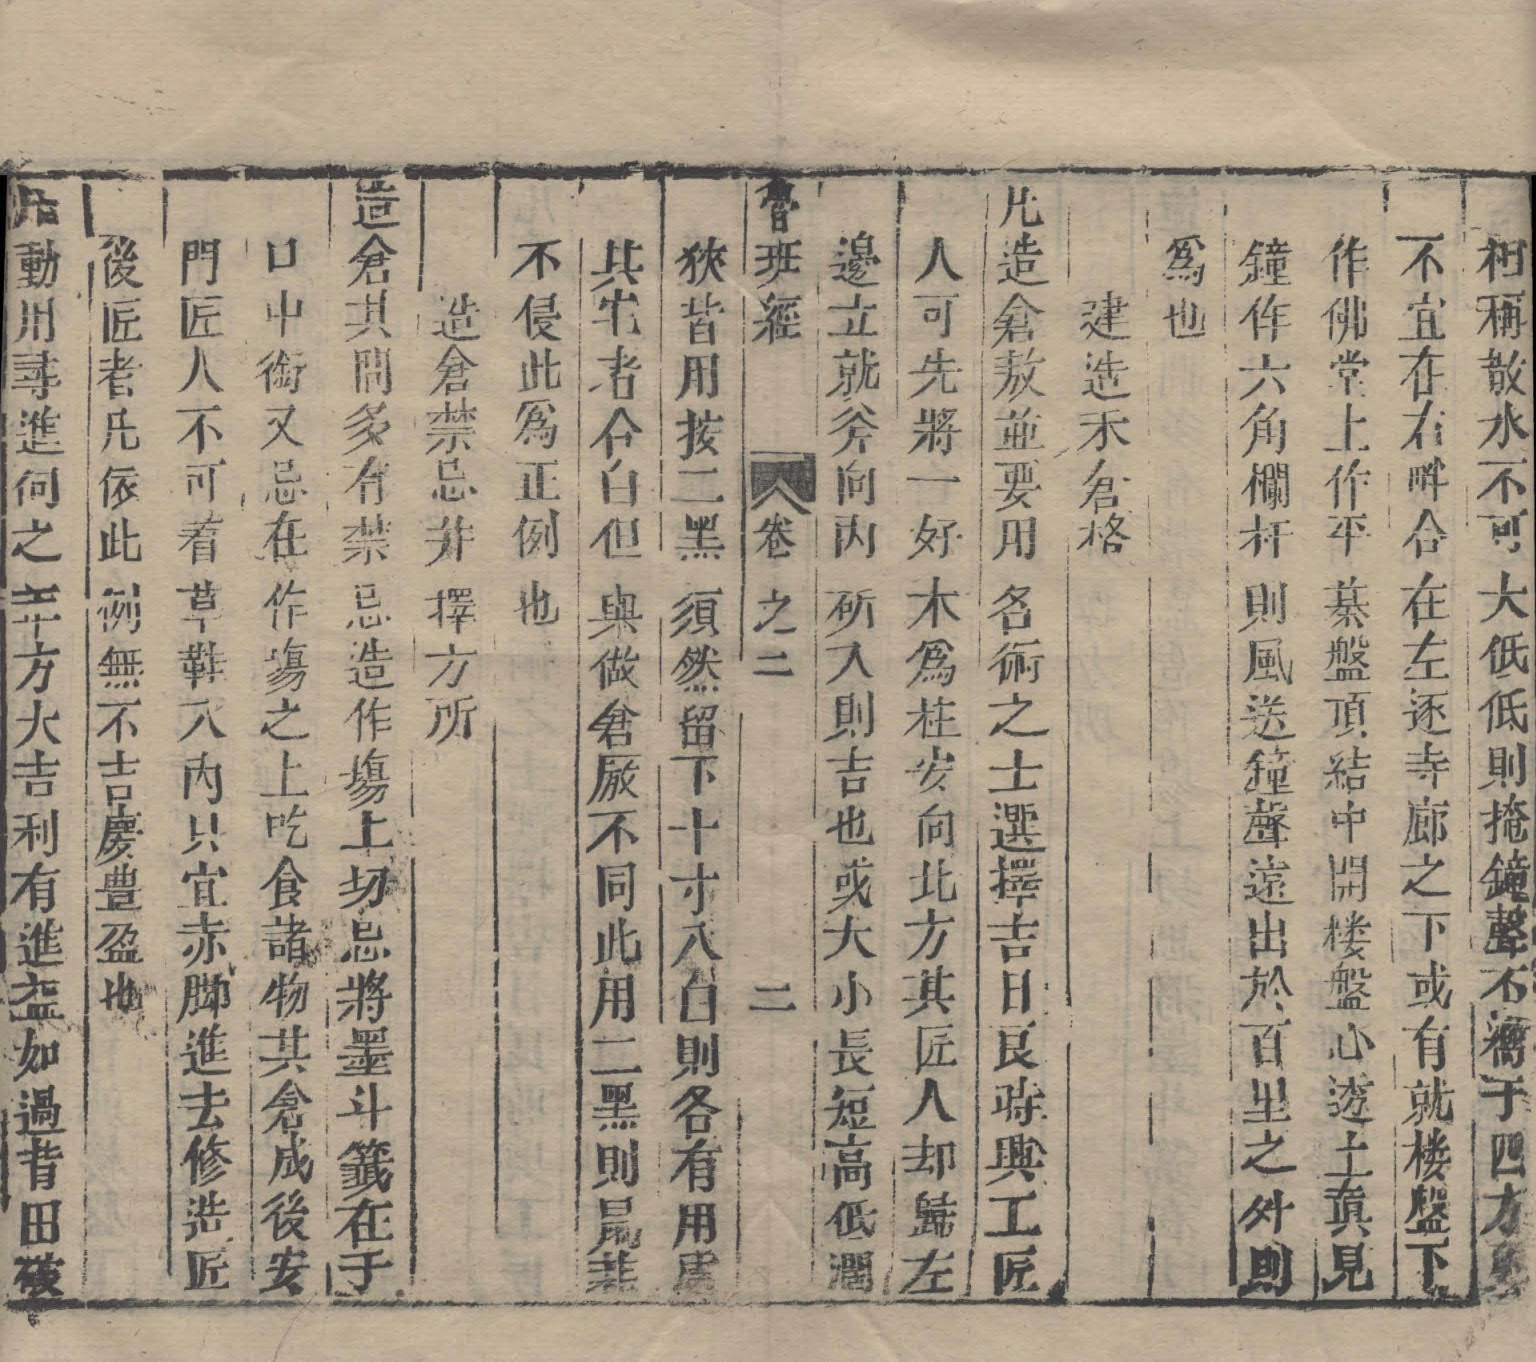 相稱散水不可大低低則掩鐘聲不嚮于四方更
不宜在右畔合在左逐寺廊之下或有就楼盤下
作佛堂上作平棊盤頂結中開楼盤心透上真見
鐘作六角欄杆則風送鐘聲遠出於百里之外則
為也
建造禾倉格
凡造倉敖並要用名術之士選擇吉日良時興工匠
人可先將一好木為柱安向北方其匠人却歸左
邊立就斧向內斫入則吉也或大小長短高低濶
魯班經 卷之二 二
狹皆用按二黑須然留下十寸八白則各有用處
其牢者合白但與做倉厫不同此用二黑則鼠
不侵此為正例也
造倉禁忌并擇方所
造倉其間多有禁忌造作塲上切忌將墨斗籤在于
口中銜又忌在作塲之上吃食諸物其倉成後安
門匠人不可着草鞋入內只宜赤脚進去修造匠
後匠者凡依此例無不吉慶豊盈也
凡動用尋進何之年方大吉利有進益如過背田破